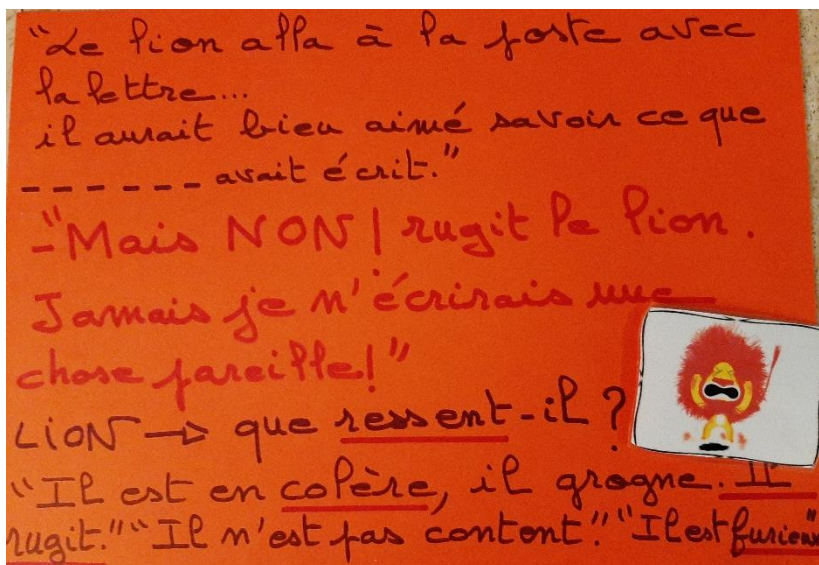 "Le lion alla à la poste avec
la lettre...
il aurait bien aimé savoir ce que
------ avait écrit."
-"Mais NON! rugit le lion.
Jamais je n'écrirais une
chose pareille!"
LION → que ressent-il?
"Il est en colère, il grogne. Il
rugit." "Il n'est pas content." "Il est furieux"